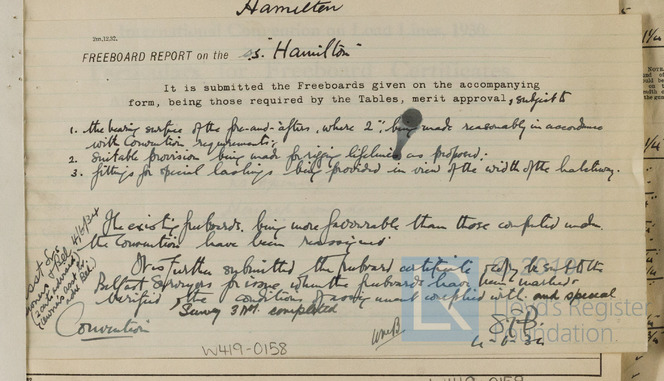 Hamilton
2m,12.32.
FREEBOARD REPORT on the S.S. "Hamilton"
It is submitted the Freeboards given on the accompanying
form, being those required by the Tables, merit approval, subject to
1. the bearing surface of the fore-and-afters, where 2", being made reasonably in accordance
with Convention requirements;
2. suitable provision being made for rigging lifelines as proposed;
3. fittings for special lashings being provided in view of the width of the hatchway.
The existing freeboards, being more favourable than those computed under
the Convention have been reassigned
It is further submitted the freeboard certificate & copy be sent to the
Belfast Surveyors for issue when the freeboards have been marked &
verified & the conditions of assignment complied with and special
Survey 3 Nº1 completed
4/6/34
Convention
4-6-34
W419-0158
© 2019
Lloyd's Register
Foundation.
W419-0158